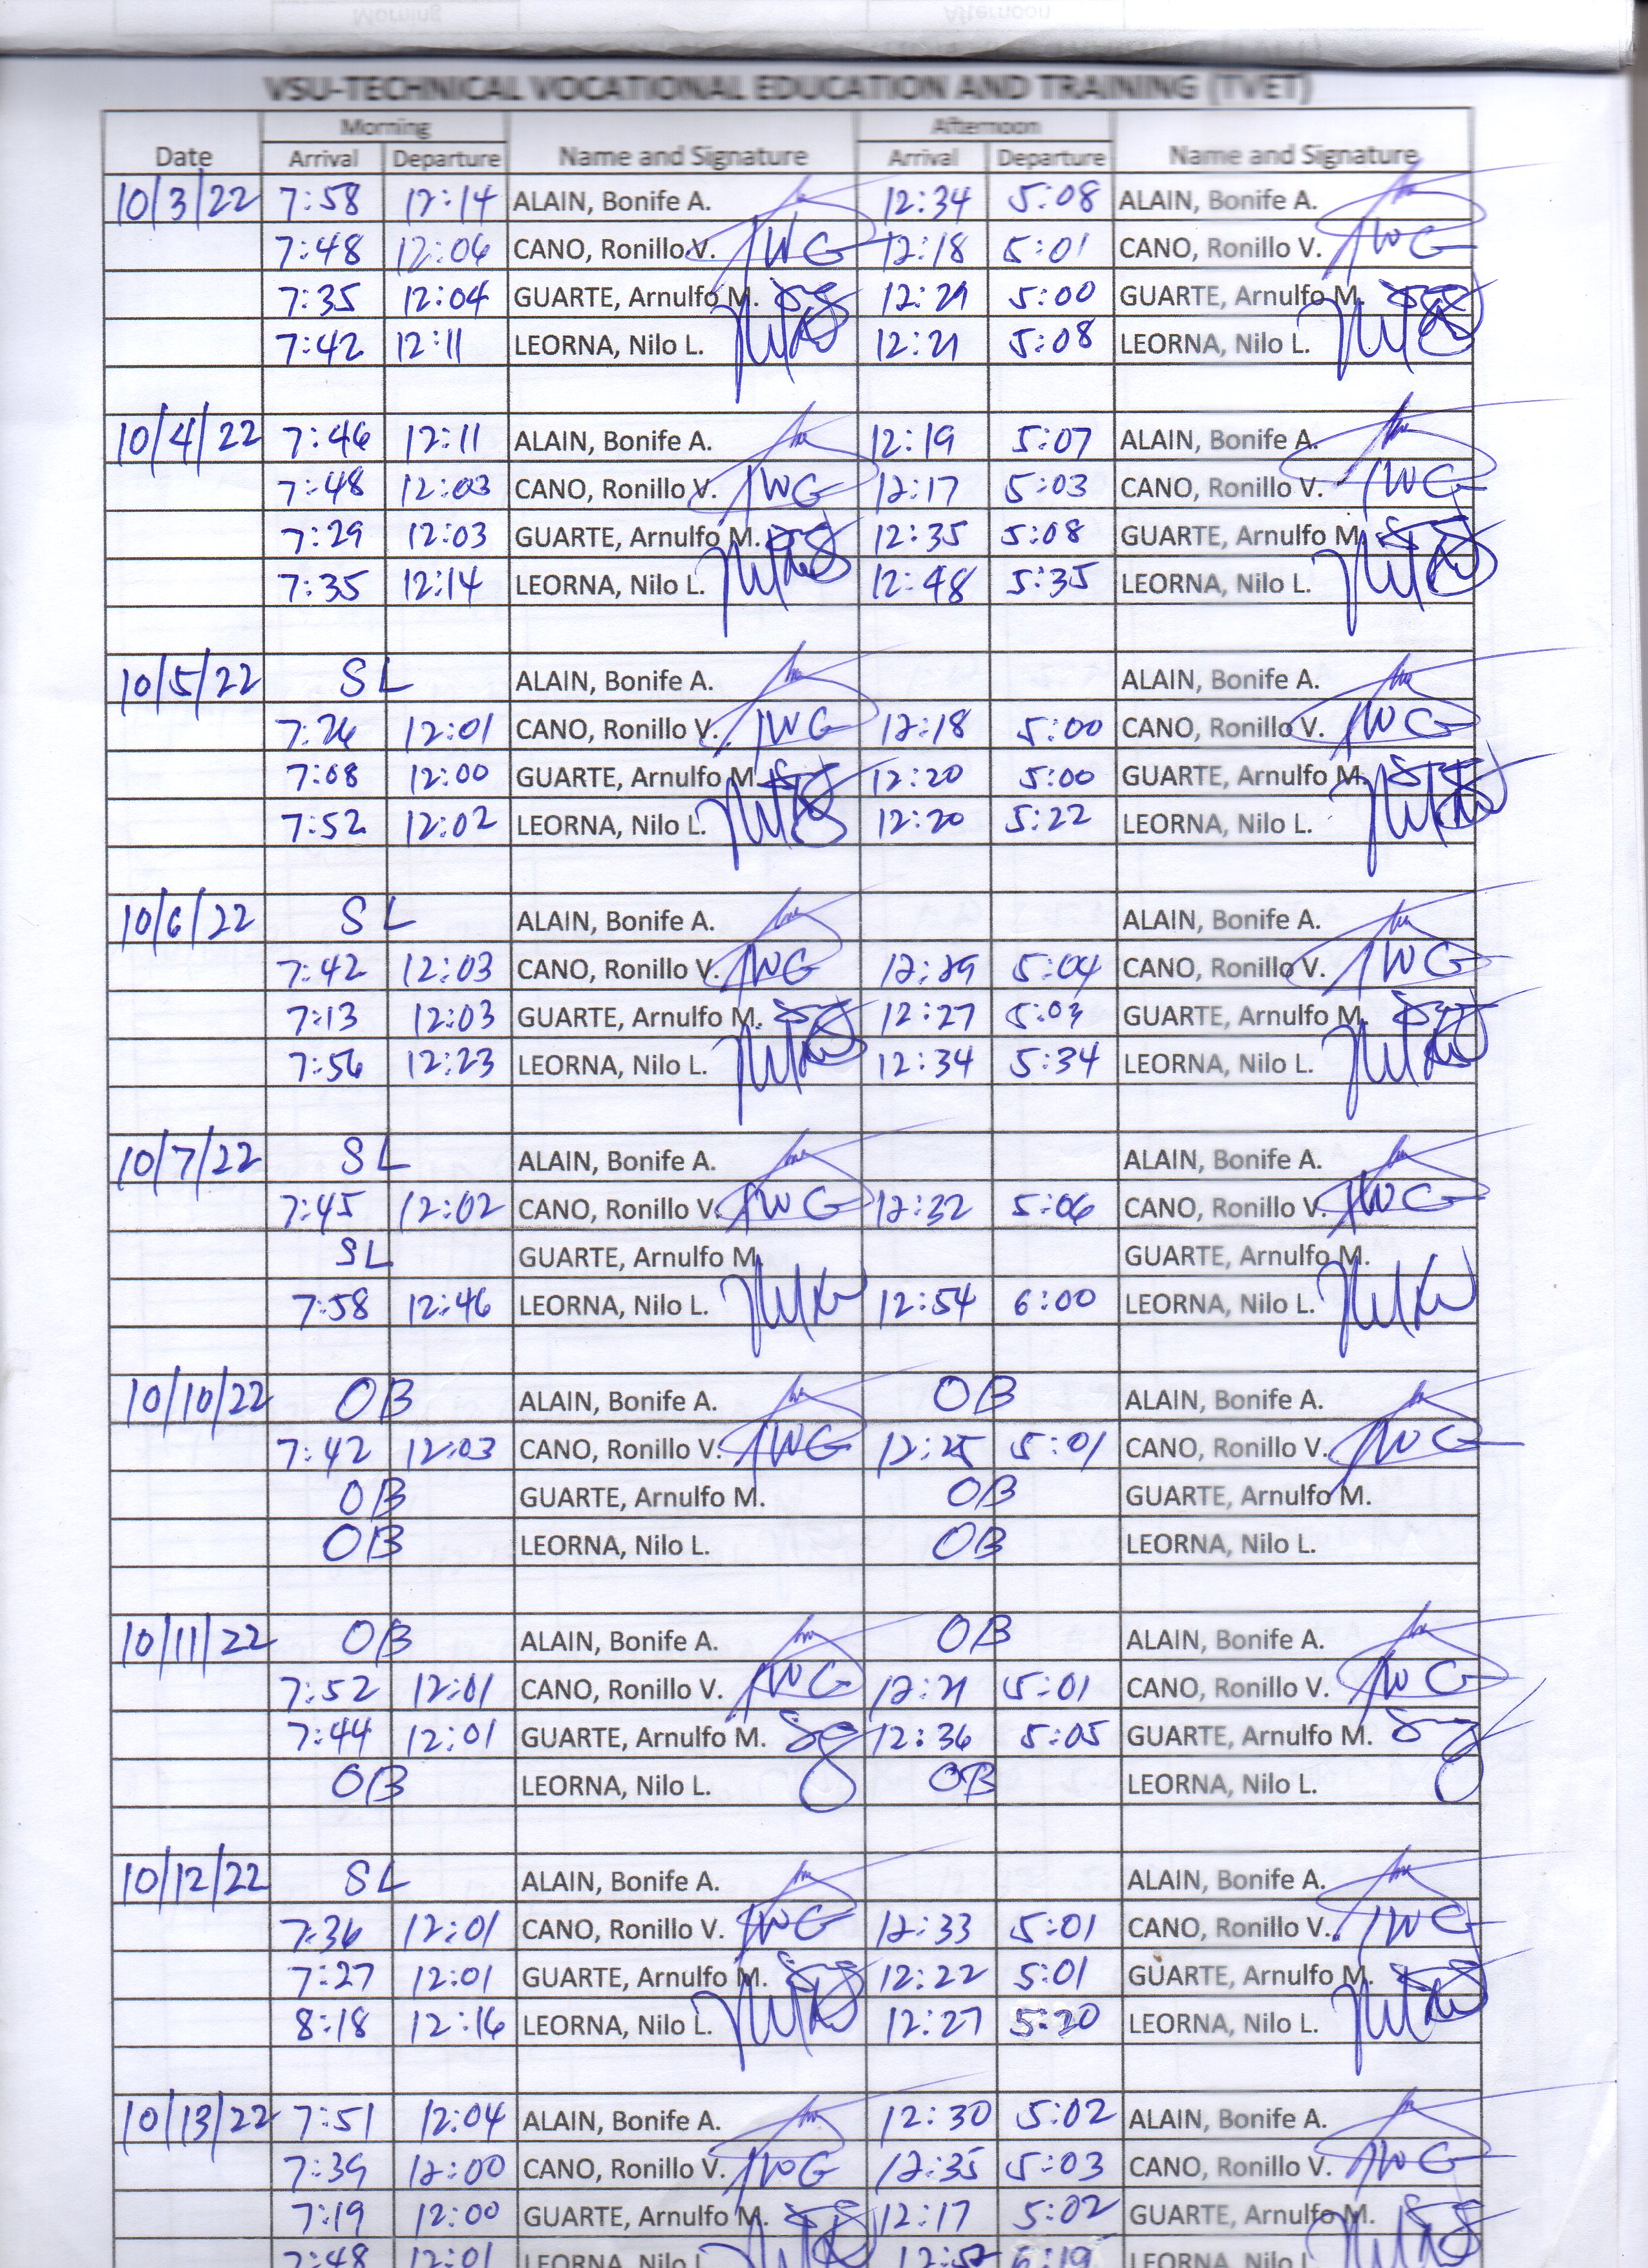 VSU-TECHNICAL VOCATIONAL EDUCATION AND TRAINING (TVET)
Morning Afternoon
Date Arrival Departure Name and Signature Arrival Departure Name and Signature
10/3/22 7:58 12:14 ALAIN, Bonife A. 12:34 5:08 ALAIN, Bonife A.
7:48 12:06 CANO, Ronillo V. 12:18 5:01 CANO, Ronillo V.
7:35 12:04 GUARTE, Arnulfo M. 12:29 5:00 GUARTE, Arnulfo M.
7:42 12:11 LEORNA, Nilo L. 12:21 5:08 LEORNA, Nilo L.
10/4/22 7:46 12:11 ALAIN, Bonife A. 12:19 5:07 ALAIN, Bonife A.
7:48 12:03 CANO, Ronillo V. 12:17 5:03 CANO, Ronillo V.
7:29 12:03 GUARTE, Arnulfo M. 12:35 5:08 GUARTE, Arnulfo M.
7:35 12:14 LEORNA, Nilo L. 12:48 5:35 LEORNA, Nilo L.
10/5/22 SL ALAIN, Bonife A. ALAIN, Bonife A.
12:01 CANO, Ronillo V. 12:18 5:00 CANO, Ronillo V.
7:08 12:00 GUARTE, Arnulfo M. 12:20 5:00 GUARTE, Arnulfo M.
7:52 12:02 LEORNA, Nilo L. 12:20 5:22 LEORNA, Nilo L.
10/6/22 SL ALAIN, Bonife A. ALAIN, Bonife A.
7:42 12:03 CANO, Ronillo V. 12:29 5:04 CANO, Ronillo V.
7:13 12:03 GUARTE, Arnulfo M. 12:27 5:03 GUARTE, Arnulfo M.
7:56 12:23 LEORNA, Nilo L. 12:34 5:34 LEORNA, Nilo L.
10/7/22 SL ALAIN, Bonife A. ALAIN, Bonife A.
7:45 12:02 CANO, Ronillo V. 12:32 5:06 CANO, Ronillo V.
SL GUARTE, Arnulfo M. GUARTE, Arnulfo M.
7:58 12:46 LEORNA, Nilo L. 12:54 6:00 LEORNA, Nilo L.
10/10/22 OB ALAIN, Bonife A. OB ALAIN, Bonife A.
7:42 12:03 CANO, Ronillo V. 12:25 5:01 CANO, Ronillo V.
OB GUARTE, Arnulfo M. OB GUARTE, Arnulfo M.
OB LEORNA, Nilo L. OB LEORNA, Nilo L.
10/11/22 OB ALAIN, Bonife A. OB ALAIN, Bonife A.
7:52 12:01 CANO, Ronillo V. 12:21 5:01 CANO, Ronillo V.
7:44 12:01 GUARTE, Arnulfo M. 12:36 5:05 GUARTE, Arnulfo M.
OB LEORNA, Nilo L. OB LEORNA, Nilo L.
10/12/22 SL ALAIN, Bonife A. ALAIN, Bonife A.
7:36 12:01 CANO, Ronillo V. 12:33 5:01 CANO, Ronillo V.
7:27 12:01 GUARTE, Arnulfo M. 12:22 5:01 GUARTE, Arnulfo M.
8:18 12:16 LEORNA, Nilo L. 12:27 5:20 LEORNA, Nilo L.
10/13/22 7:51 12:04 ALAIN, Bonife A. 12:30 5:02 ALAIN, Bonife A.
7:39 12:00 CANO, Ronillo V. 12:35 5:03 CANO, Ronillo V.
7:19 12:00 GUARTE, Arnulfo M. 12:17 5:02 GUARTE, Arnulfo M.
7:48 12:01 LEORNA, Nilo L. LEORNA, Nilo L.